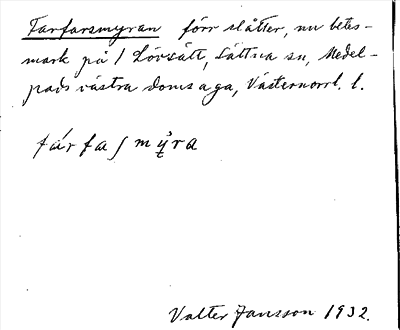 Farfarsmyran förr slåtter, nu betes-
mark på 1 Lövsått, Sättna sn, Medel-
pads västra domsaga, Västernorrl. l.
fárfaʃmy̌ra
Valter Jansson 1932.